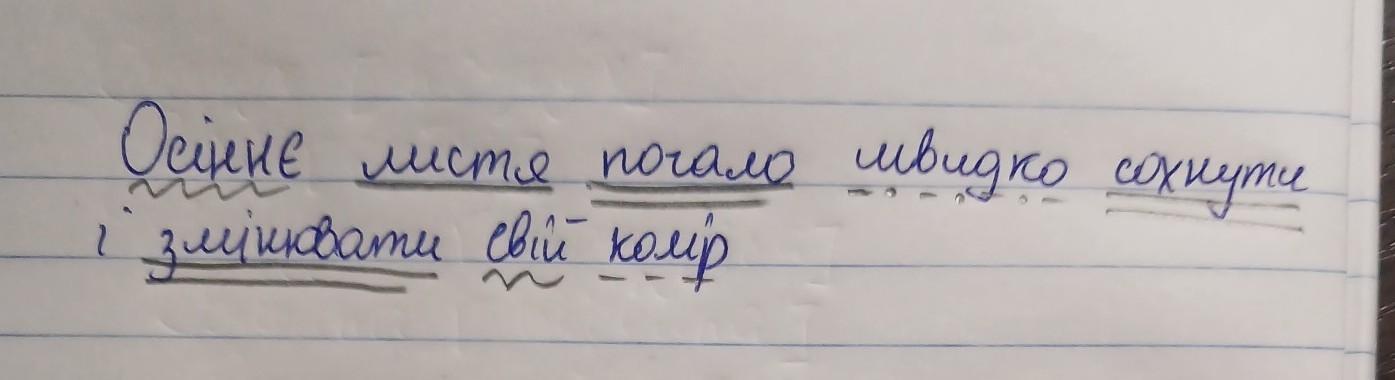 Осіннє листя почало швидко сохнути
і змінювати свій колір